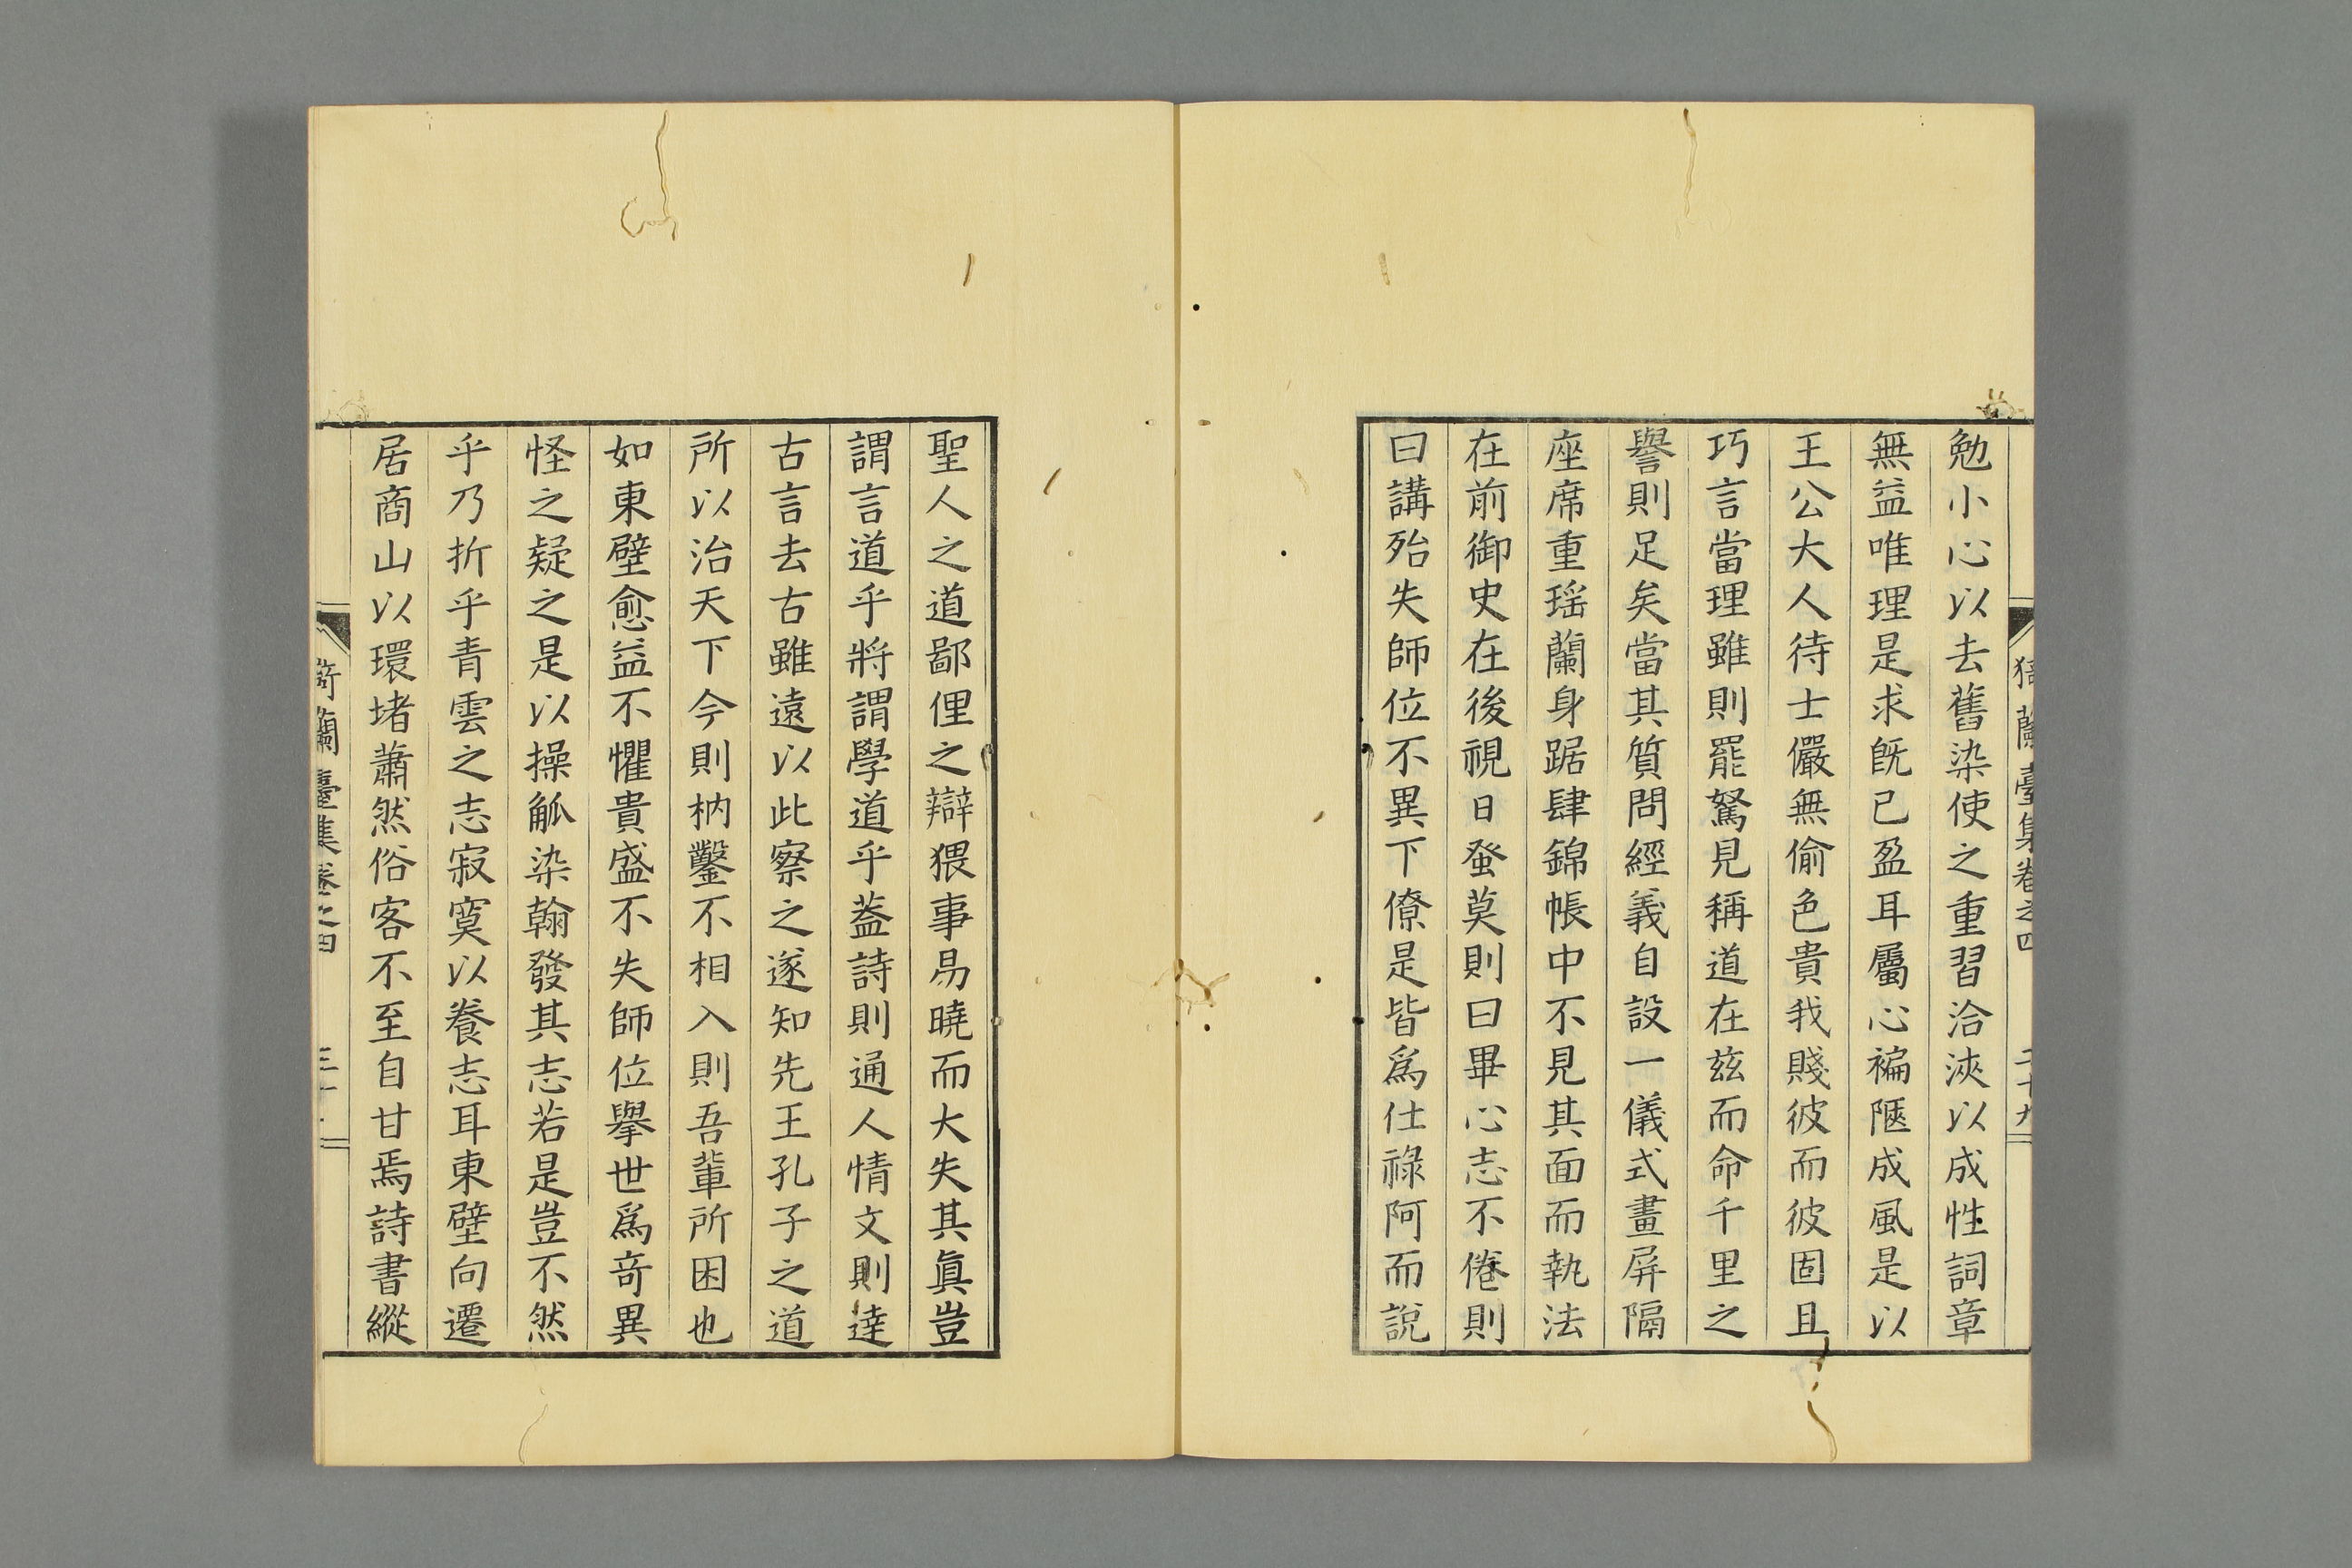 猗蘭臺集卷之四 二十九
勉小心以去舊染使之重習洽浹以成性詞章
無益唯理是求旣已盈耳屬心褊陋成風是以
王公大人待士儼無偷色貴我賤彼而彼固且
巧言當理雖則罷駑見稱道在玆而命千里之
譽則足矣當其質問經義自設一儀式畫屏隔
座席重瑶蘭身踞肆錦帳中不見其面而執法
在前御史在後視日蚤莫則曰畢心志不倦則
曰講殆失師位不異下僚是皆爲仕祿阿而說
聖人之道鄙俚之辯猥事易曉而大失其眞豈
謂言道乎將謂學道乎葢詩則通人情文則達
古言去古雖遠以此察之遂知先王孔子之道
所以治天下今則枘鑿不相入則吾輩所困也
如東壁愈益不懼貴盛不失師位擧世爲奇異
怪之疑之是以操觚染翰發其志若是豈不然
乎乃折乎青雲之志寂寞以養志耳東壁向遷
居商山以環堵蕭然俗客不至自甘焉詩書縱
猗蘭臺集卷之四